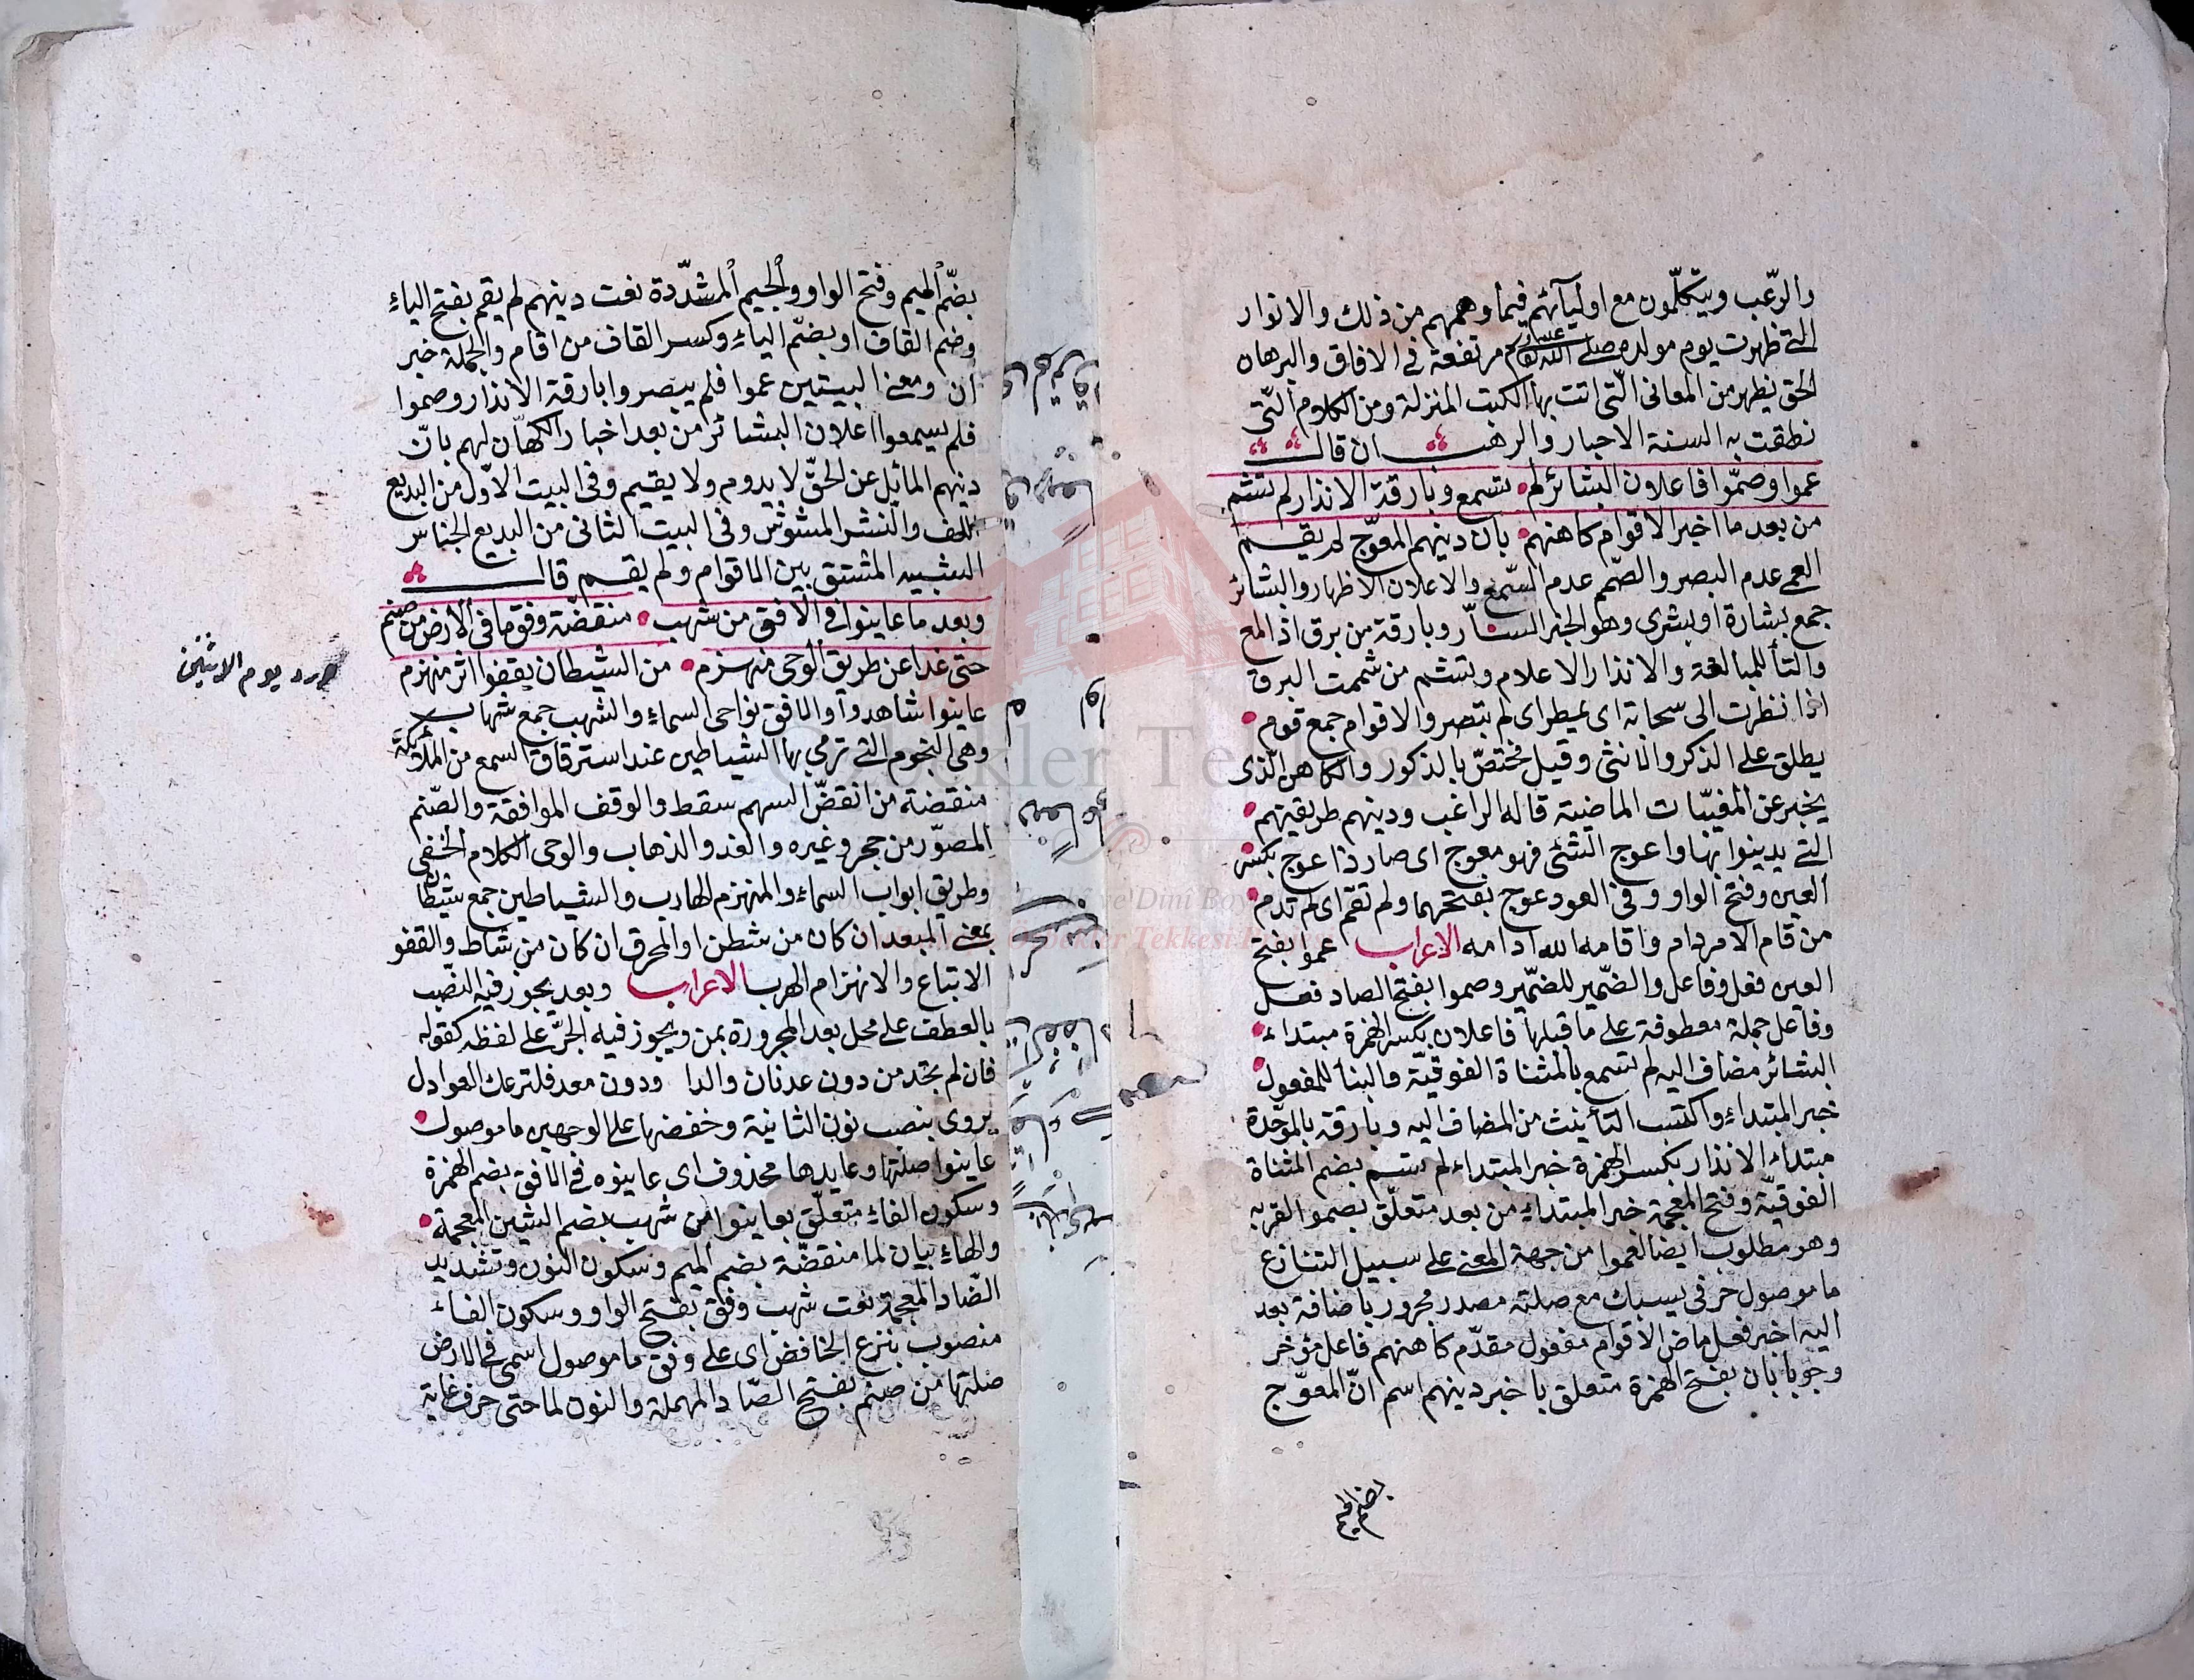 والرّعب ويتكلّمون مع اوليآئهم فيما وهمهم من ذلك والانوار
التے ظهرت يوم مولده صلے الله عليه وسلم مرتفعة فے الافاق والبرهان
الحق يظهر من المعانى الّتى اتت بها الكتب المنزلة ومن الكلام الّتى
نطقت به السنة الاحبار والرهب‍ـــان قالـــت
عموا وصمّوا فاعلان البشائر لم تسمع وبارقة الانذار لم تشم
من بعد ما اخبر الاقوام كاهنهم بان دينهم المعوّج لم يقـــم
العمى عدم البصر والصّم عدم السّمع والاعلان الاظهار والبشائر
جمع بشارة او بشرى وهو الخبر السّارّ وبارقة من برق اذا لمع
والتاء للمبالغة والانذار الاعلام وتشم من شممت البرق
اذا نظرت الى سحابة اى يمطر اى لم تبصر والاقوام جمع قوم
يطلق على الذكر والانثى وقيل مختصّ بالذكور والكاهن الّذى
يخبر عن المغيّبات الماضية قاله الراغب ودينهم طريقتهم
التے يدينوا بها واعوج الشئ فهو معوج اى صار ذا عوج بكسر
العين وفتح الواو وفى العود عوج بفتحهما ولم تقم اى لم تدم
من قام الامر دام واقامه الله ادامه الاعراب عموا بفتح
العين فعل وفاعل والضّمير للضّمير وصموا بفتح الصاد فعـل
وفاعل جملة معطوفة على ما قبلها فاعلان بكسر الهمزة مبتداء
البشائر مضاف اليه لم تسمع بالمثناة الفوقيّة والبناء للمفعول
خبر المبتداء واكتسب التأنيث من المضاف اليه وبارقة بالموّحّدة
مبتداء الانذار بكسر الهمزة خبر المبتداء لم تشم بضم المثناة
الفوقيّة وفتح المعجمة خبر المبتداء من بعد متعلّق بصموا لقربه
وهو مطلوب ايضا لعموا من جهة المعنى على سبيل التنازع
ما موصول حرفى يسبك مع صلته مصدر مجرور باضافة بعد
اليه اخبر فعل ماض الاقوام مفعول مقدّم كاهنهم فاعل مؤخر
وجوبا بان بفتح الهمزة متعلق باخبر دينهم اسم انّ المعوّج
بضم الميم
بضمّ الميم وفتح الواو والجيم المشدّدة نعت دينهم لم يقم بفتح الياء
وضم القاف او بضمّ الياء وكسر القاف من اقام والجملة خبر
ان ومعنے البيتين عموا فلم يبصروا بارقة الانذار وصموا
فلم يسمعوا اعلان البشائر من بعد اخبار الكهّان لهم بانّ
دينهم المائل عن الحقّ لا يدوم ولا يقيم وفى البيت الاوّل من البديع
اللف والنشر المشوّش وفى البيت الثانى من البديع الجناس
الشبيه المشتق بين الماقوام ولم يقـــم قالـــت
وبعد ما عاينوا فى الافق من شهب منقضّة وفق ما فى الارض من صنم
حتى غدا عن طريق الوحى منهزم من الشيطان يقفوا اثر منهزم
ورد يوم الاثنين
عاينوا شاهدوا والافق نواحى السماء والشهب جمع شهاب
وهى النجوم التے ترمى بها الشياطين عند استرقاق السمع من الملائكة
منقضة من انقضّ السهم سقط والوقف الموافقة والصّنم
المصوّر من حجر وغيره والغد والذهاب والوحى الكلام الخفى
وطريق ابواب السماء والمنهزم الهارب والشياطين جمع شيطان
بمعنے المبعد ان كان من شطن او المحرق ان كان من شاط والقفو
الاتباع والانهزام الهرب الاعراب وبعد يجوز فيه النّصب
بالعطف على محل بعد المجرورة بمن ويجوز فيه الجرّ على لفظه كقوله
فان لم تجد من دون عدنان والدا ودون معد فلترعك العوادل
يروى بنصب نون الثانية وخفضها على الوجهين ما موصول
عاينوا صلتها وعايدها محذوف اى عاينوه فى الافق بضم الهمزة
وسكون الفاء متعلّق بعاينوا من شهب بضم الشين المعجمة
والهاء بيان لما منقضّة بضم الميم وسكون النون وتشديد
الضّاد المعجمة نعت شهب وفق بفتح الواو وسكون الفاء
منصوب بنزع الخافض اى على وفق ما موصول اسمى فى الارض
صلتها من صنم بفتح الصّاد المهملة والنون لما حتى حرف غاية